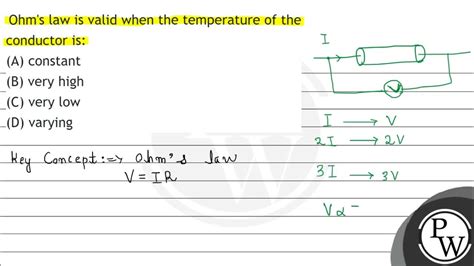 Ohm's law is valid when the temperature of the
conductor is:
(A) constant
(B) very high
(C) very low
(D) varying
Key Concept:⇒ Ohm's law
V = IR
I
V
I → V
2I → 2V
3I → 3V
V∝
P
W